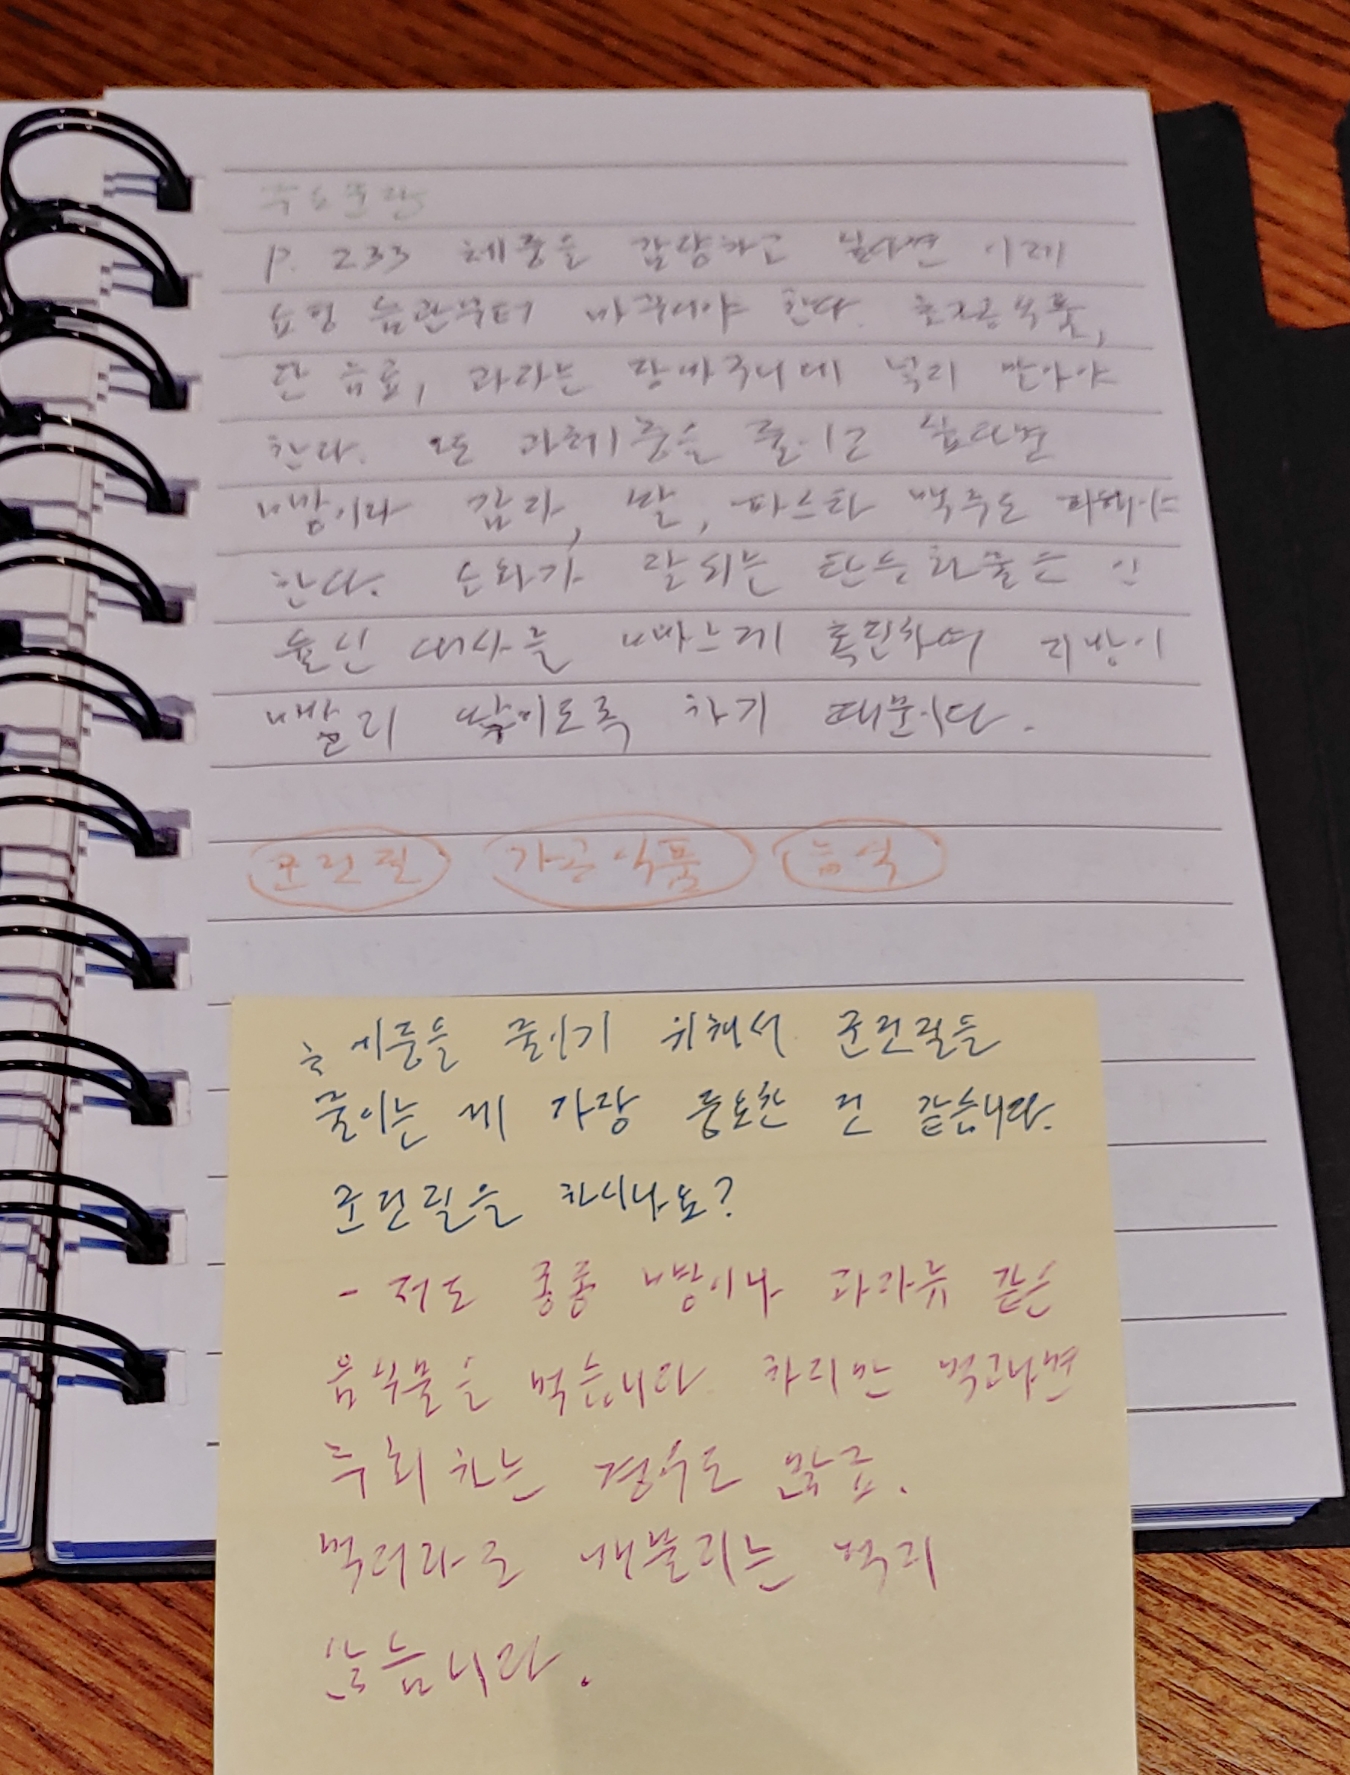 주요문장
P. 233 체중을 감량하고 싶다면 이제
쇼핑 습관부터 바꾸어야 한다. 초가공식품,
단 음료, 과자는 장바구니에 넣지 말아야
한다. 또 과체중을 줄이고 싶다면
빵이나 감자, 쌀, 파스타 맥주도 피해야
한다. 소화가 잘되는 탄수화물은 인
슐린 대사를 빠르게 촉진하여 지방이
빨리 쌓이도록 하기 때문이다.
군것질 가공식품 음식
체중을 줄이기 위해서 군것질을
줄이는 게 가장 중요한 건 같습니다.
군것질을 하시나요?
- 저도 종종 빵이나 과자류 같은
음식물을 먹습니다. 하지만 먹고나면
후회하는 경우도 많죠.
먹더라도 배불리는 먹지
않습니다.